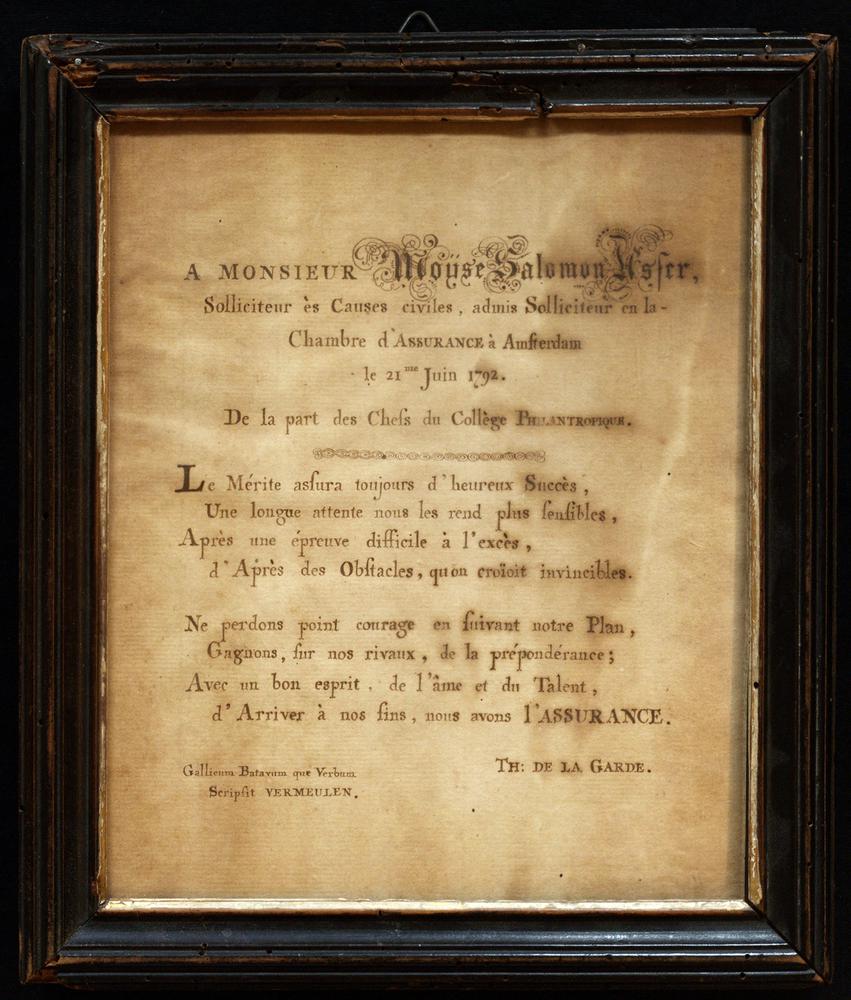 A MONSIEUR Moÿse Salomon Asser,
Solliciteur ès Causes civiles, admis Solliciteur en la-
Chambre d'ASSURANCE à Amſterdam
le 21me Juin 1792.
De la part des Chefs du Collège PHILANTROPIQUE.
Le Mérite aſsura toujours d'heureux Succès,
Une longue attente nous les rend plus ſenſibles,
Après une épreuve difficile à l'excès,
d'Après des Obſtacles, qu'on croïoit invincibles.
Ne perdons point courage en ſuivant notre Plan,
Gagnons, ſur nos rivaux, de la prépondérance;
Avec un bon esprit, de l'âme et du Talent,
d'Arriver à nos fins, nous avons l'ASSURANCE.
TH: DE LA GARDE.
Gallicum Batavum que Verbum
Scripſit VERMEULEN.